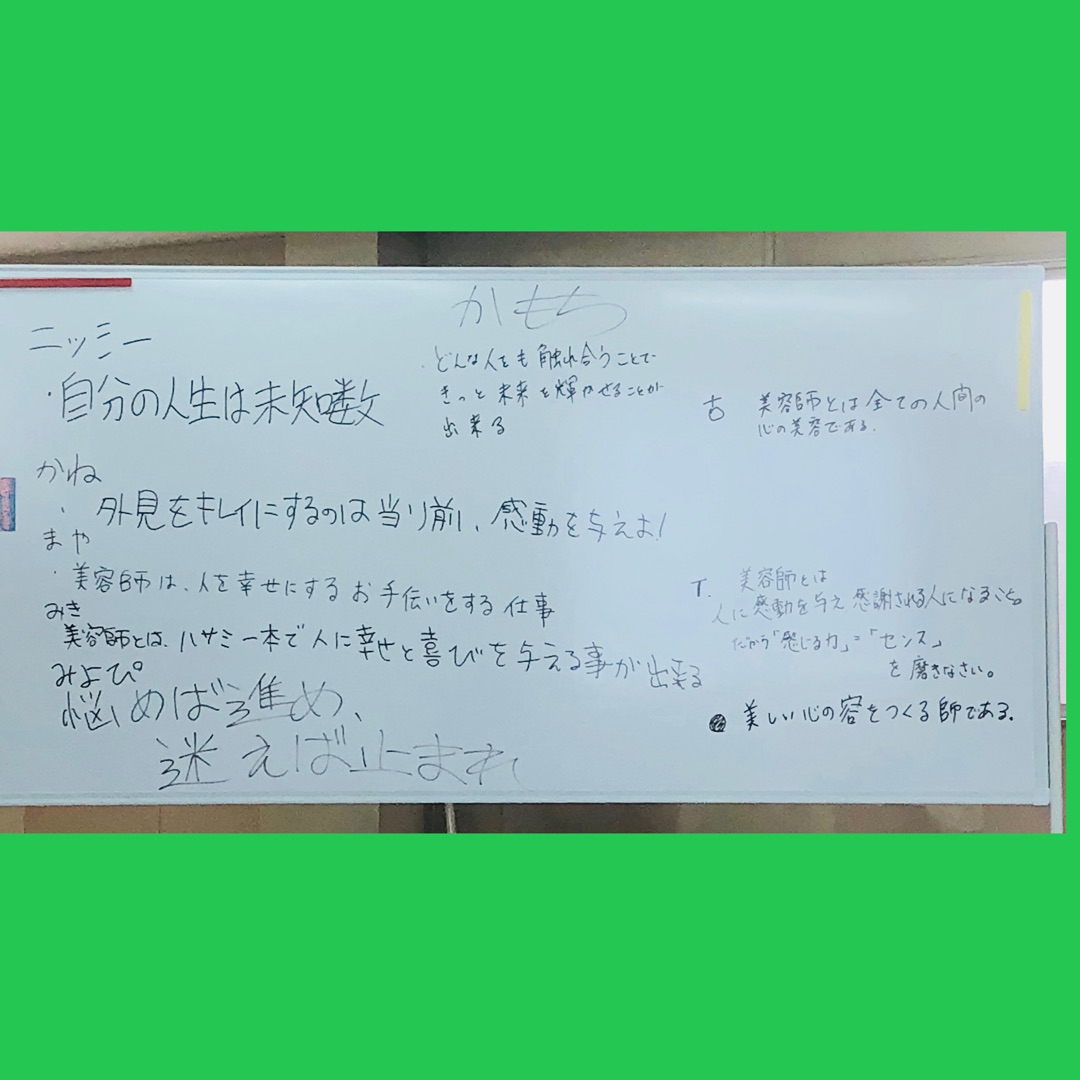 ニッシー
・自分の人生は未知数
かもち
・どんな人をも触れ合うことで
きっと未来を輝かせることが
出来る
古 美容師とは全ての人間の
心の美容である。
かね
・外見をキレイにするのは当り前、感動を与えよ!
まや
・美容師は、人を幸せにするお手伝いをする仕事
みき
美容師とは、ハサミ一本で人に幸せと喜びを与える事が出来る
みよぴ
悩めば進め、
迷えば止まれ
T. 美容師とは
人に感動を与え感謝される人になること。
だから「感じる力」=「センス」
を磨きなさい。
美しい心の容をつくる師である。